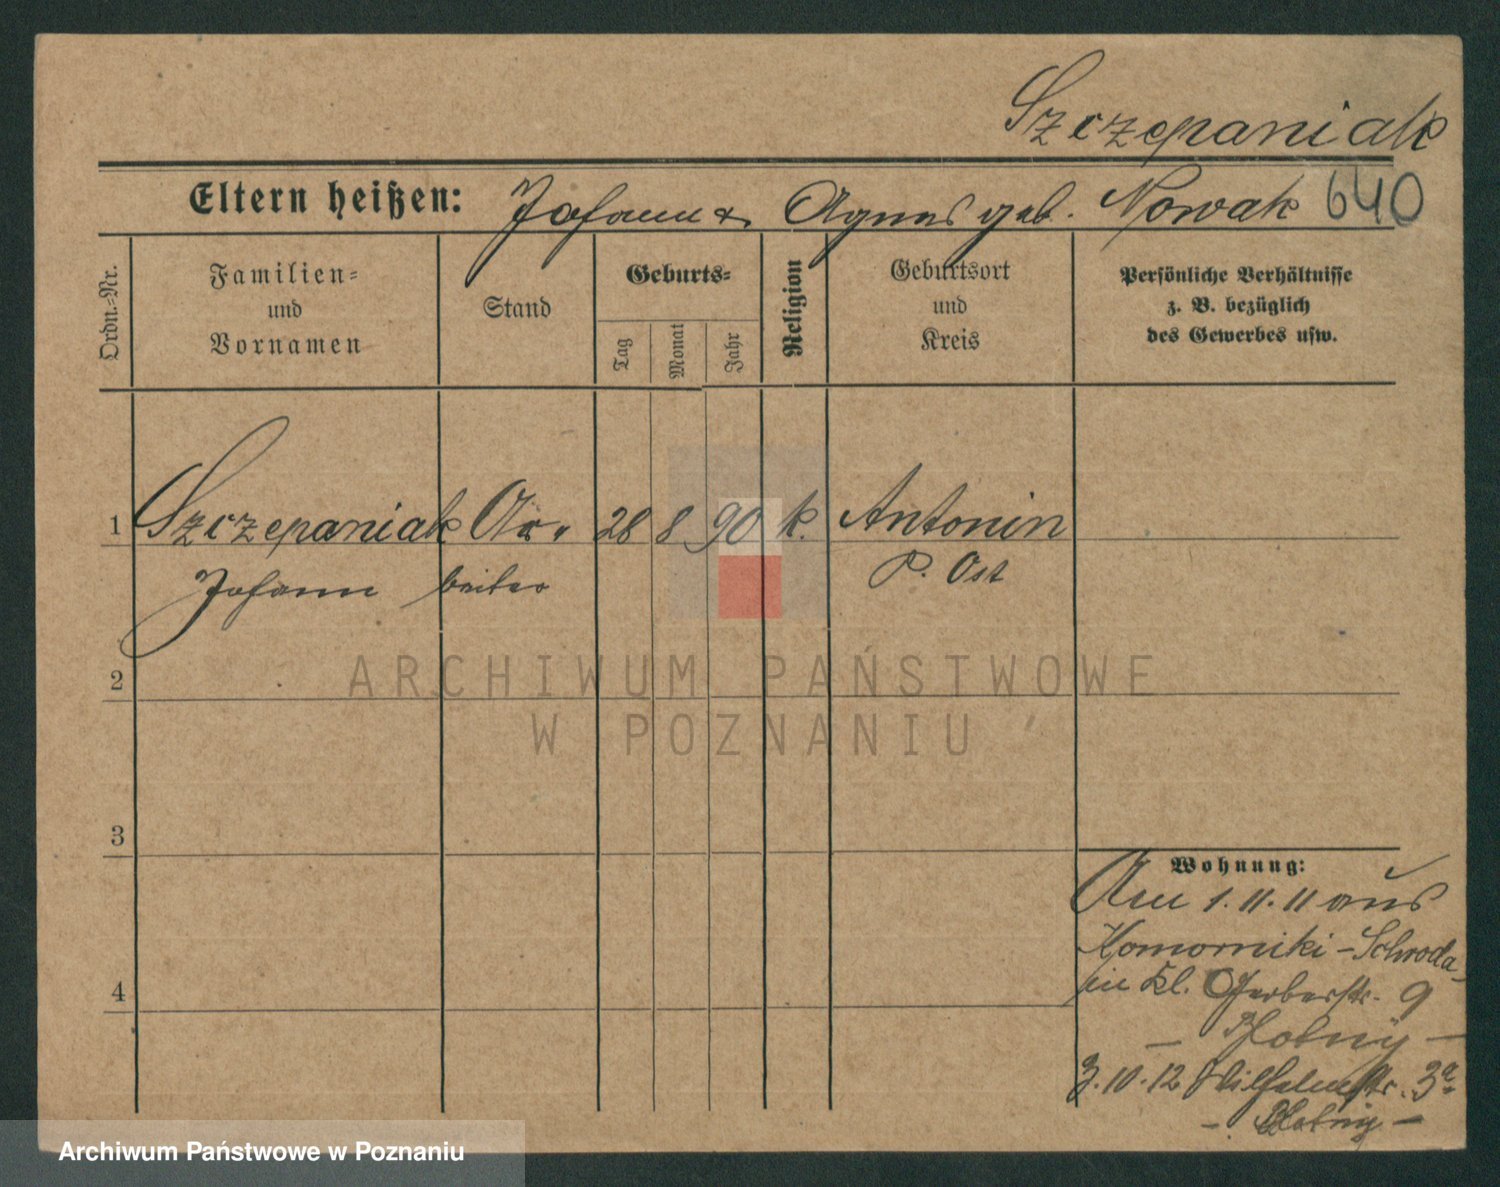 Szczepaniak
Eltern heißen: Johann & Agnes geb. Nowak 640
Ordn.-Nr.
Familien-
und
Vornamen
Stand
Geburts-
Tag
Monat
Jahr
Religion
Geburtsort
und
Kreis
Persönliche Verhältnisse
z. B. bezüglich
des Gewerbes usw.
1 Szczepaniak Ar- 28 8 90 k. Antonin
Johann beiter P. Ost
2
3
4
Wohnung:
Am 1.11.11 aus
Komorniki-Schroda
in Kl. Gerberstr. 9
3.10.12 Wilhelmstr. 3a
ARCHIWUM PAŃSTWOWE
W POZNANIU
Archiwum Państwowe w Poznaniu